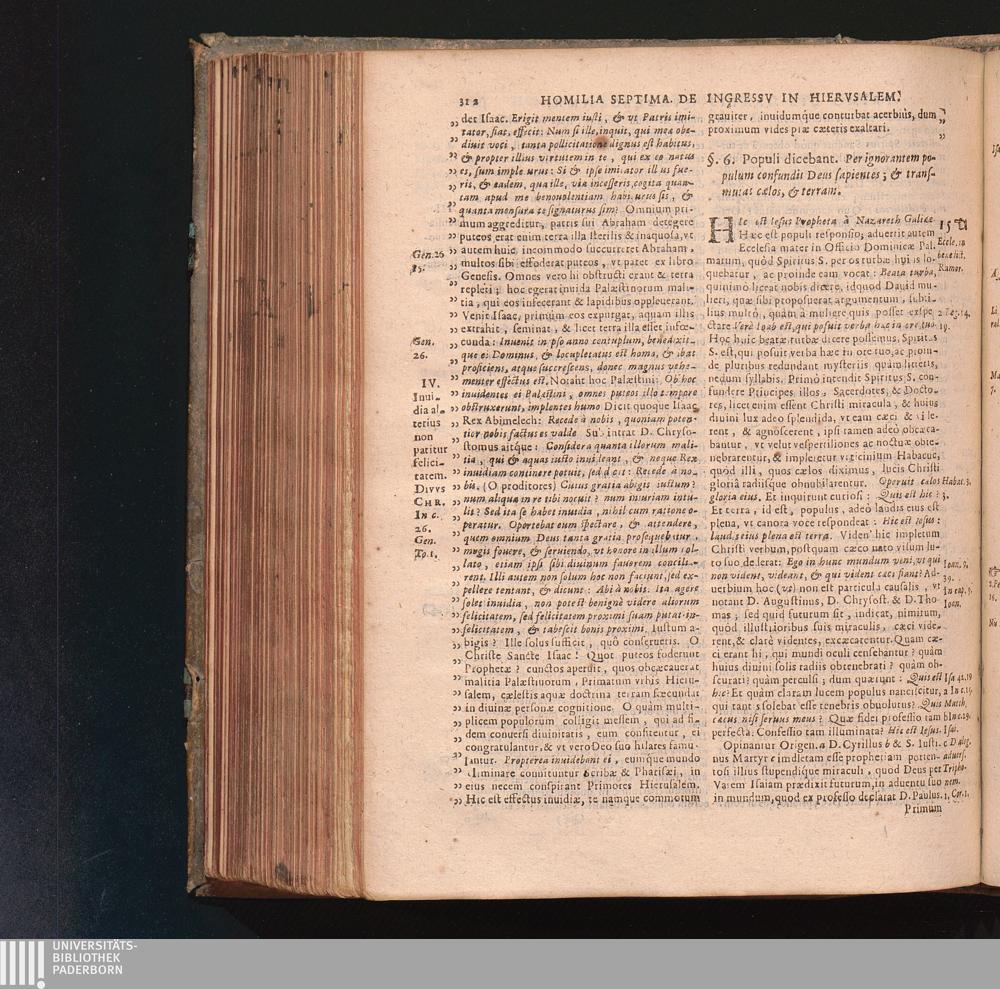 312 HOMILIA SEPTIMA. DE INGRESSV IN HIERVSALEM.
det Isaac. Erigit mentem iusti, & vt Patris imi-
tator, fiat, efficit: Num si ille, inquit, qui mea obe-
diuit voci, tanta pollicitatione dignus est habitus,
& propter illius virtutem in te, qui ex eo natus
es, sum impleturus: Si & ipse imitator illius fue-
ris, & eadem, qua ille, via incesseris, cogita quan-
tam apud me beneuolentiam habiturus sis, &
quanta mensura te signaturus sim? Omnium pri-
mum aggreditur, patris sui Abraham detegere
puteos, erat enim terra illa sterilis & inaquosa, vt
autem huic incommodo succurreret Abraham,
multos sibi effoderat puteos, vt patet ex libro
Genesis. Omnes vero hi obstructi erant & terra
repleti; hoc egerat inuida Palæstinorum mali-
tia, qui eos infecerant & lapidibus oppleuerant.
Venit Isaac, primùm eos expurgat, aquam illis
extrahit, seminat, & licet terra illa esset infœ-
cunda: Inuenit in ipso anno centuplum, benedixit-
que ei Dominus, & locupletatus est homo, & ibat
proficiens, atque succrescens, donec magnus vehe-
menter effectus est, Notant hoc Palæstini: Ob hoc
inuidentes ei Palæstini, omnes puteos illo tempore
obstruxerunt, implentes humo Dicit quoque Isaac
Rex Abimelech: Recede à nobis, quoniam poten-
tior nobis factus es valde Subintrat D. Chryso-
stomus aitque: Considera quanta illorum mali-
tia, qui & aquas iusto inuideant, & neque Rex
inuidiam continere potuit, sed dicit: Recede a no-
bis. (O proditores) Cuius gratia abigis iustum?
num aliqua in re tibi nocuit? num iniuriam intu-
lit? Sed ita se habet inuidia, nihil cum ratione o-
peratur. Oportebat eum spectare, & attendere,
quem omnium Deus tanta gratia prosequebatur,
magis fouere, & seruiendo, vt honore in illum col-
lato, etiam ipsi sibi diuinum fauorem concilia-
rent. Illi autem non solum hoc non faciunt, sed ex-
pellere tentant, & dicunt: Abi à nobis. Ita agere
solet inuidia, non potest benignè videre aliorum
felicitatem, sed felicitatem proximi suam putat in-
felicitatem, & tabescit bonis proximi. Iustum a-
bigis? Ille solus sufficit, quô conserueris. O
Christe Sancte Isaac! Quot puteos foderunt
Prophetæ? cunctos aperuit, quos obcæcauerat
malitia Palæstinorum. Primatum vrbis Hieru-
salem, cælestis aquæ doctrina terram fœcundat
in diuinæ personæ cognitione. O quàm multi-
plicem populorum colligit messem, qui ad fi-
dem conuersi diuinitatis, eum confitentur, ei
congratulantur, & vt vero Deo suo hilares famu-
lantur. Propterea inuidebant ei, eumque mundo
eliminare connituntur Scribæ & Pharisæi, in
eius necem conspirant Primores Hierusalem.
Hic est effectus inuidiæ, te namque commotum
Gen. 26
15.
Gen.
26.
IV.
Inui-
dia al-
terius
non
patitur
felici-
tatem.
DIVVS
CHR.
IN c.
26.
Gen.
To. 1.
grauiter, inuidumque conturbat acerbiùs, dum
proximum vides piæ cæteris exaltari.
§. 6. Populi dicebant. Per ignorantem po-
pulum confundit Deus sapientes; & trans-
mutat cælos, & terram.
HIc est Iesus Propheta à Nazareth Galileæ
Hæc est populi responsio; aduertit autem
Ecclesia mater in Officio Dominicæ Pal-
marum, quòd Spiritus S. per os turbæ huius lo-
quebatur, ac proinde eam vocat: Beata turba,
quinimò liceat nobis dicere, idquod Dauid mu-
lieri, quæ sibi proposuerat argumentum, subti-
lius multò, quàm à muliere quis posset expe-
ctare Verè Ioab est, qui posuit verba hæc in ore tuo.
Hoc huic beatæ turbæ dicere possemus, Spiritus
S. est, qui posuit verba hæc in ore tuo, ac proin-
de pluribus redundant mysteriis quàm litteris,
nedum syllabis. Primò intendit Spiritus S. con-
fundere Principes illos, Sacerdotes, & Docto-
res, licet enim essent Christi miracula, & huius
diuini lux adeo splendida, vt eam cæci & vide-
rent, & agnoscerent, ipsi tamen adeò obcæca-
bantur, vt velut vespertiliones ac noctuæ obte-
nebrarentur, & impleretur vaticinium Habacuc,
quòd illi, quos cælos diximus, lucis Christi
gloriâ radiisque obnubilarentur. Operuit cælos
gloria eius. Et inquirunt curiosi: Quis est hic?
Et terra, id est, populus, adeò laudis eius est
plena, vt canora voce respondeat: Hic est Iesus:
laudis eius plena est terra. Viden' hic impletum
Christi verbum, postquam cæco nato visum lu-
to suo dederat: Ego in hunc mundum veni, vt qui
non vident, videant, & qui vident cæci fiant? Ad-
uerbium hoc (vt) non est particula causalis, vt
notant D. Augustinus, D. Chrysost. & D. Tho-
mas; sed quid futurum sit, indicat, nimirum,
quòd illustrioribus suis miraculis, cæci vide-
rent, & clarè videntes, excæcarentur. Quam cæ-
ci erant hi, qui mundi oculi censebantur? quàm
huius diuini solis radiis obtenebrati? quàm ob-
scurati? quàm perculsi; dum quærunt: Quis est
hic? Et quàm claram lucem populus nanciscitur,
qui tantis solebat esse tenebris obuolutus? Quis
cæcus nisi seruus meus? Quæ fidei professio tam
perfecta? Confessio tam illuminata? Hic est Iesus.
Opinantur Origen. a D. Cyrillus b & S. Iusti-
nus Martyr c imdletam esse prophetiam poten-
tosi illius stupendique miraculi, quod Deus per
Vatem Isaiam prædixit futurum, in aduentu suo
in mundum, quod ex professo declarat D. Paulus.
Primùm
15
Eccle. in
bened ict.
Ramor.
2 Reg. 14.
19.
Habac. 3.
3.
Ioan. 9.
39.
In cap. 9.
Ioan.
Isa 42. 19
a In c. 15.
Matth.
b In c. 29.
Isai.
c Dialog.
aduers.
Tripho-
nem.
1. Cor. 1.
UNIVERSITÄTS-
BIBLIOTHEK
PADERBORN